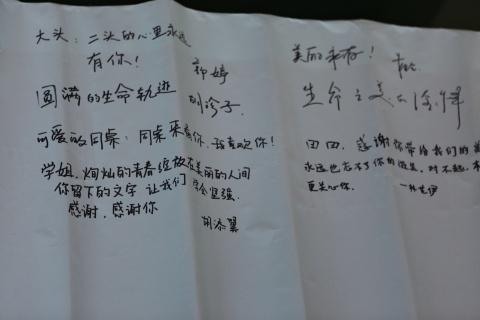 大头：二头的心里永远
有你！
郭婷
圆满的生命轨迹
可爱的同桌：同桌来看你，我喜欢你！
学姐，绚灿的青春绽放在美丽的人间
你留下的文字 让我们学会坚强.
感谢，感谢你
胡添翼
美丽
生命之美
田田，感谢你带给我们的美
永远也忘不了你的微笑，对不起，
更关心你.